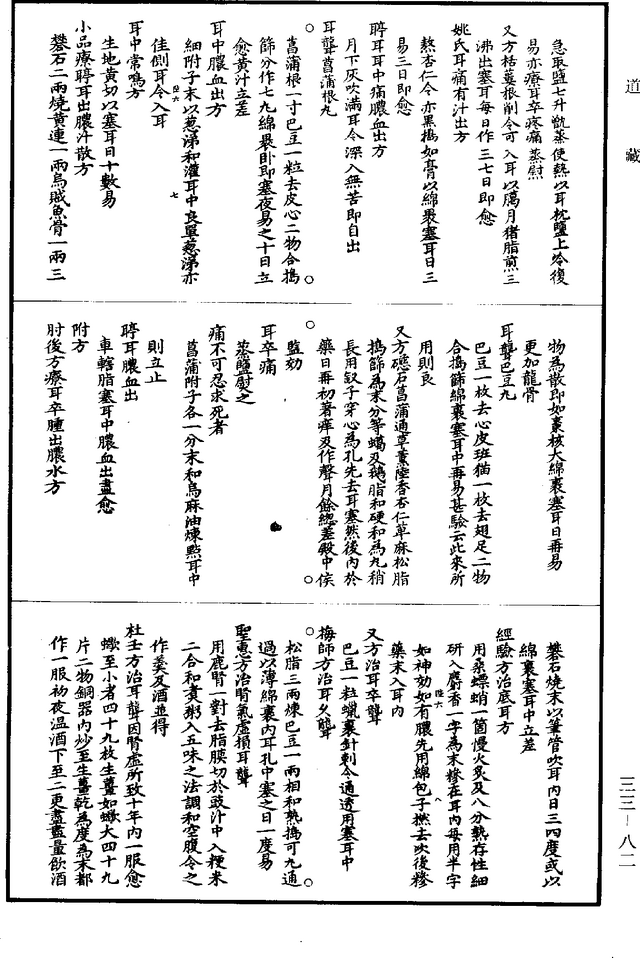 道藏
急取鹽七升甑蒸使熱以耳枕鹽上冷復
易亦療耳卒疼痛蒸熨
又方栝蔞根削令可入耳以臈月猪脂煎三
沸出塞耳每日作三七日即愈
姚氏耳痛有汁出方
熬杏仁令赤黑搗如膏以綿裹塞耳日三
易三日即愈
聤耳耳中痛膿血出方
月下灰吹滿耳令深入無苦即自出
耳聾菖蒲根丸
菖蒲根一寸巴豆一粒去皮心二物合搗
篩分作七丸綿裹卧即塞夜易之十日立
愈黄汁立差
耳中膿血出方
細附子末以葱涕和灌耳中良單葱涕亦
佳側耳令入耳
耳中常鳴方
生地黄切以塞耳日十數易
小品療聤耳出膿汁散方
礬石二兩燒黄連一兩烏賊魚骨一兩三
物為散即如棗核大綿裹塞耳日再易
更加龍骨
耳聾巴豆丸
巴豆一枚去心皮班猫一枚去翅足二物
合搗篩綿裹塞耳中再易甚驗云此來所
用則良
又方磁石菖蒲通草薰陸香杏仁萆麻松脂
搗篩為末分等蠟及鵝脂和硬和為丸稍
長用釵子穿心為孔先去耳塞然後內於
藥日再初著痒及作聲月餘總差殿中侯
監効
耳卒痛
蒸鹽熨之
痛不可忍求死者
菖蒲附子各一分末和烏麻油煉點耳中
則立止
聤耳膿血出
車轄脂塞耳中膿血出盡愈
附方
肘後方療耳卒腫出膿水方
礬石燒末以筆管吹耳內日三四度或以
綿裹塞耳中立差
經驗方治底耳方
用桑螵蛸一箇慢火炙及八分熟存性細
研入麝香一字為末糝在耳內每用半字
如神効如有膿先用綿包子撚去次後糝
藥末入耳內
又方治耳卒聾
巴豆一粒蠟裹針刺令通透用塞耳中
梅師方治耳久聾
松脂三兩煉巴豆一兩相和熟搗可九通
過以薄綿裹內耳孔中塞之日一度易
聖惠方治腎氣虛損耳聾
用鹿腎一對去脂膜切於豉汁中入粳米
二合和煮粥入五味之法調和空腹令之
作羹及酒並得
杜壬方治耳聾因腎虛所致十年內一服愈
蠍至小者四十九枚生薑如蠍大四十九
片二物銅器內炒至生薑乾為度為末都
作一服初夜溫酒下至二更盡盡量飲酒
三三－八二